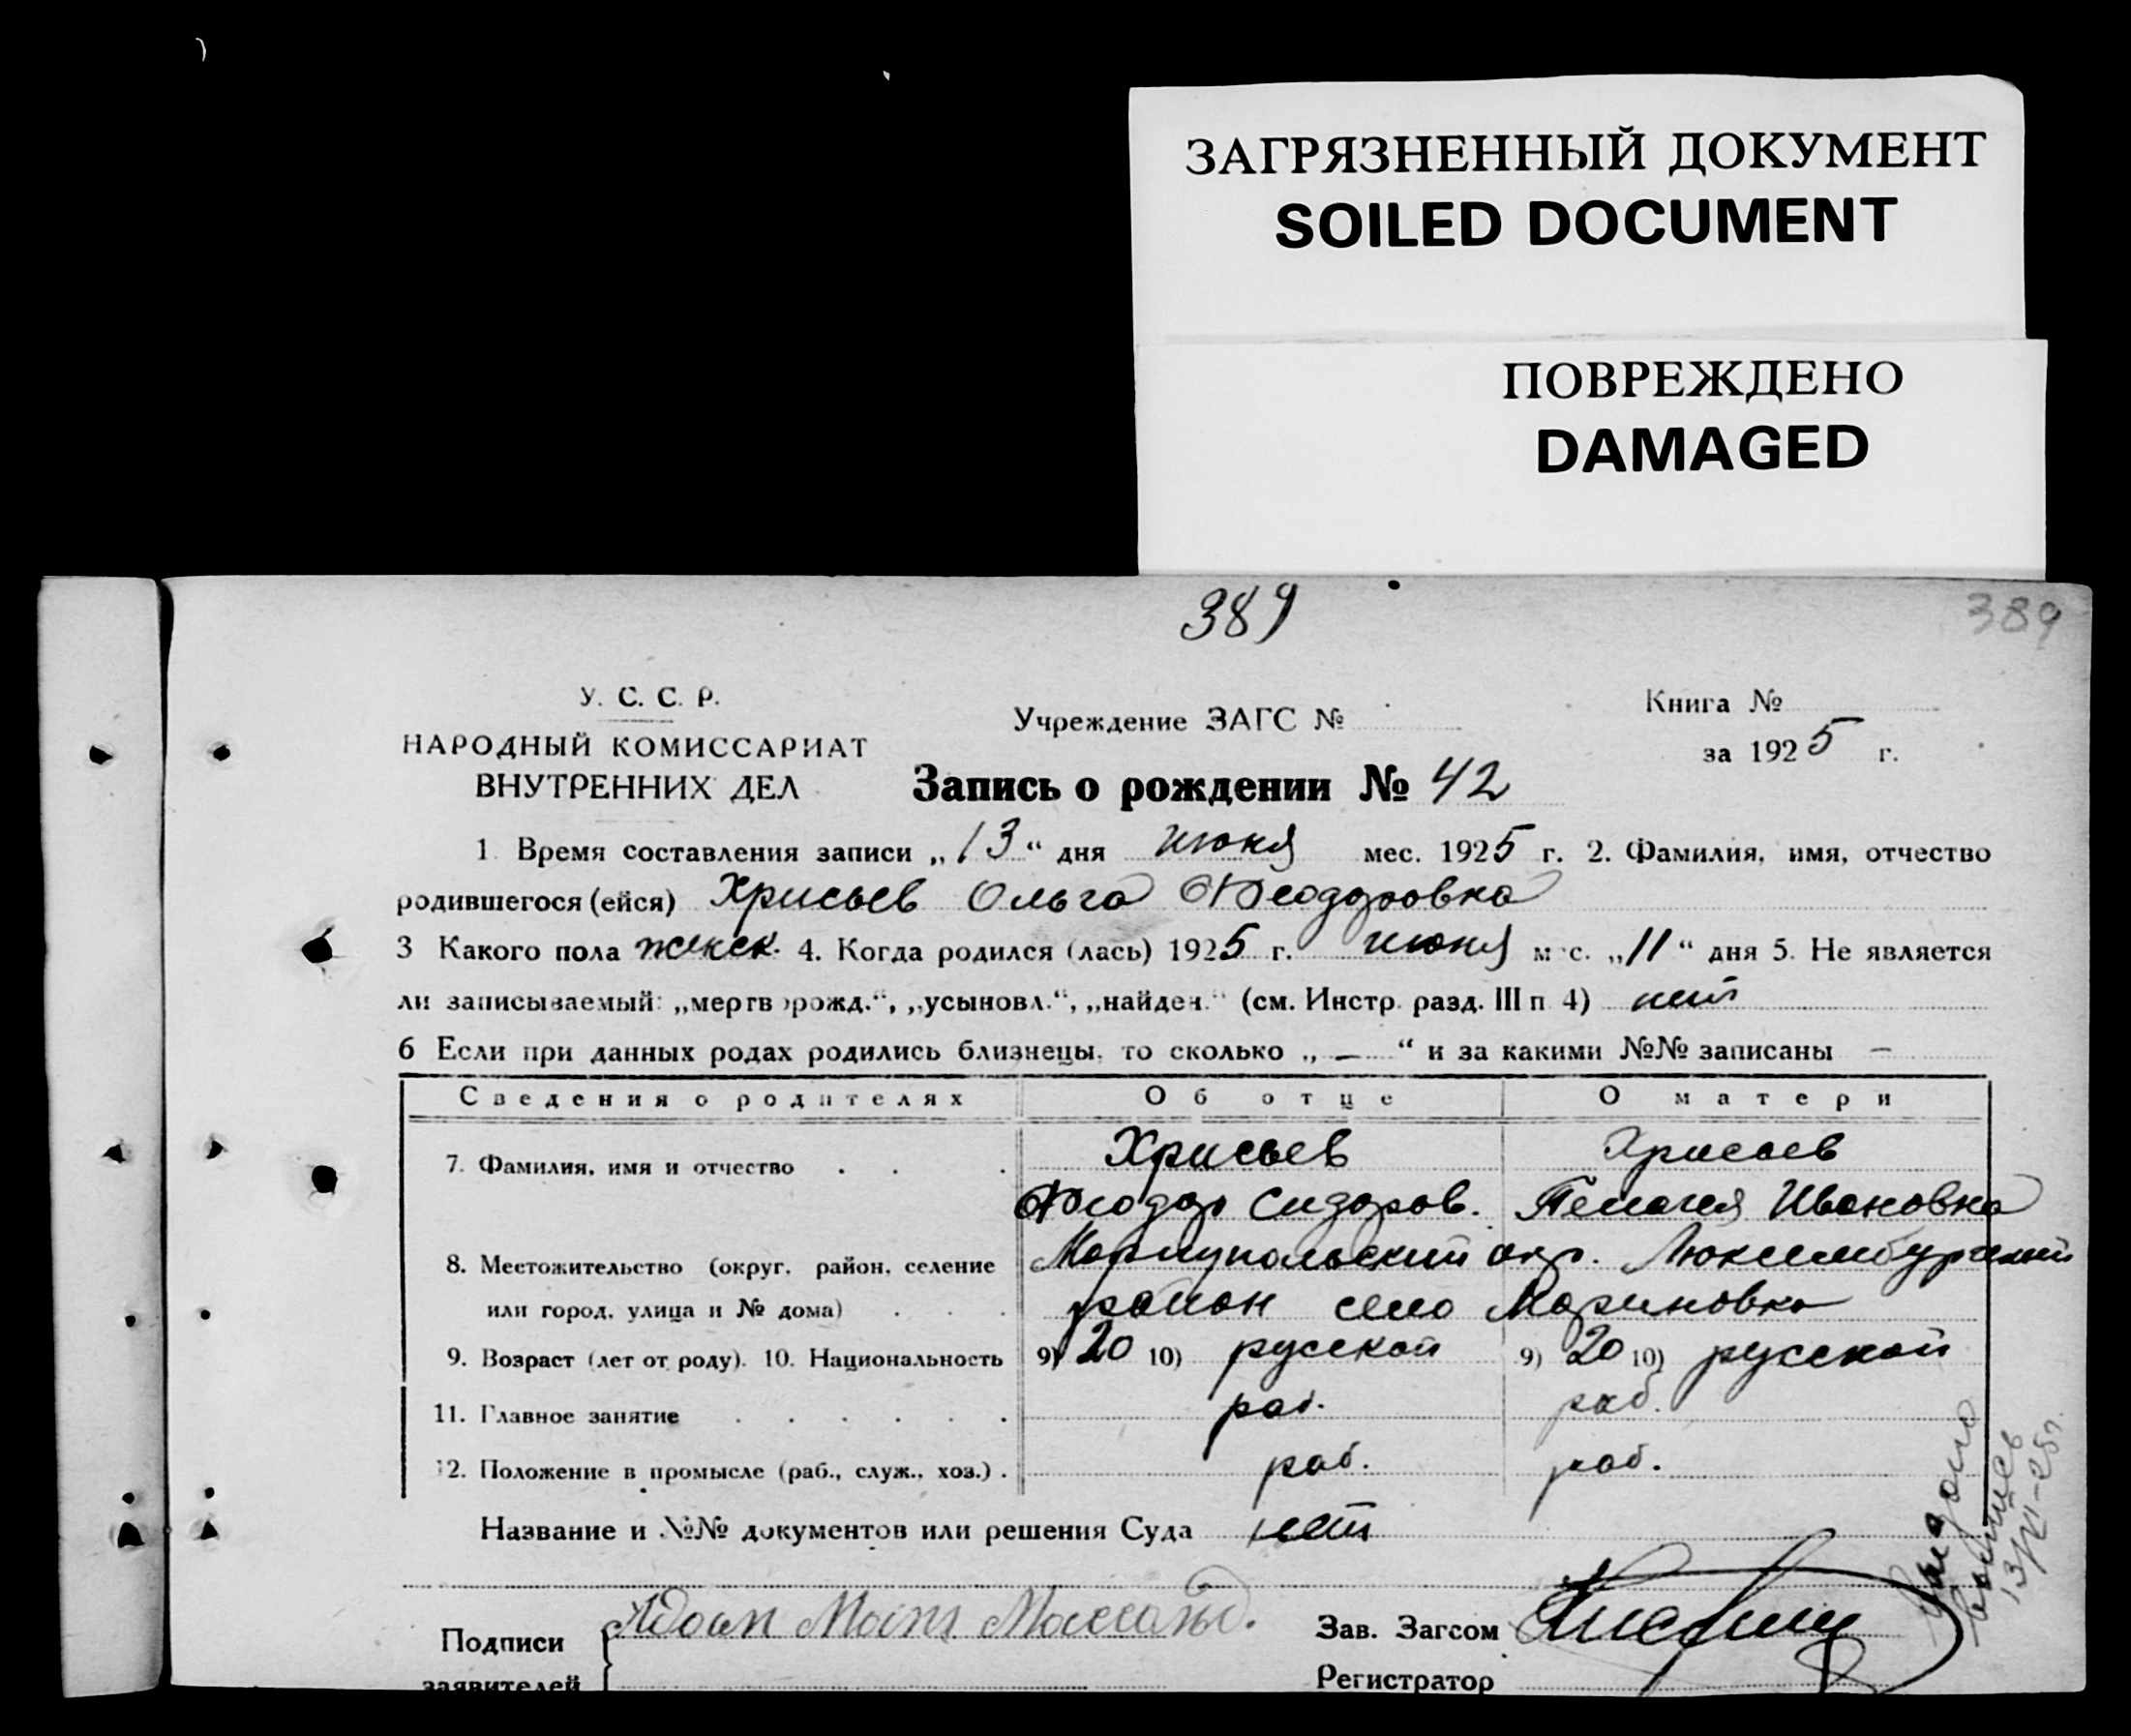 ЗАГРЯЗНЕННЫЙ ДОКУМЕНТ
SOILED DOCUMENT
ПОВРЕЖДЕНО
DAMAGED
389
389
У. С. С. Р.
НАРОДНЫЙ КОМИССАРИАТ
ВНУТРЕННИХ ДЕЛ
Учреждение ЗАГС №
Книга №
за 1925 г.
Запись о рождении № 42
1. Время составления записи „13“ дня июня мес. 1925 г. 2. Фамилия, имя, отчество
родившегося (ейся) Хрисьев Ольга Феодоровна
3 Какого пола женск. 4. Когда родился (лась) 1925 г. июня мес. „11“ дня 5. Не является
ли записываемый: „мертворожд.“, „усыновл.“, „найден.“ (см. Инстр. разд. III п 4) нет
6 Если при данных родах родились близнецы, то сколько „ — “ и за какими №№ записаны —
Сведения о родителях Об отце О матери
7. Фамилия, имя и отчество . . . Хрисьев Хрисьев
Феодор Сидоров. Пелагея Ивановна
8. Местожительство (округ, район, селение Мариупольский окр. Люксембургский
или город, улица и № дома) . . . район село Мариновка
9. Возраст (лет от роду). 10. Национальность 9) 20 10) русской 9) 20 10) русской
11. Главное занятие . . . . . . раб. раб.
12. Положение в промысле (раб., служ., хоз.) . раб. раб.
Название и №№ документов или решения Суда нет
Подписи
заявителей
Зав. Загсом
Регистратор
13/VI-25г.